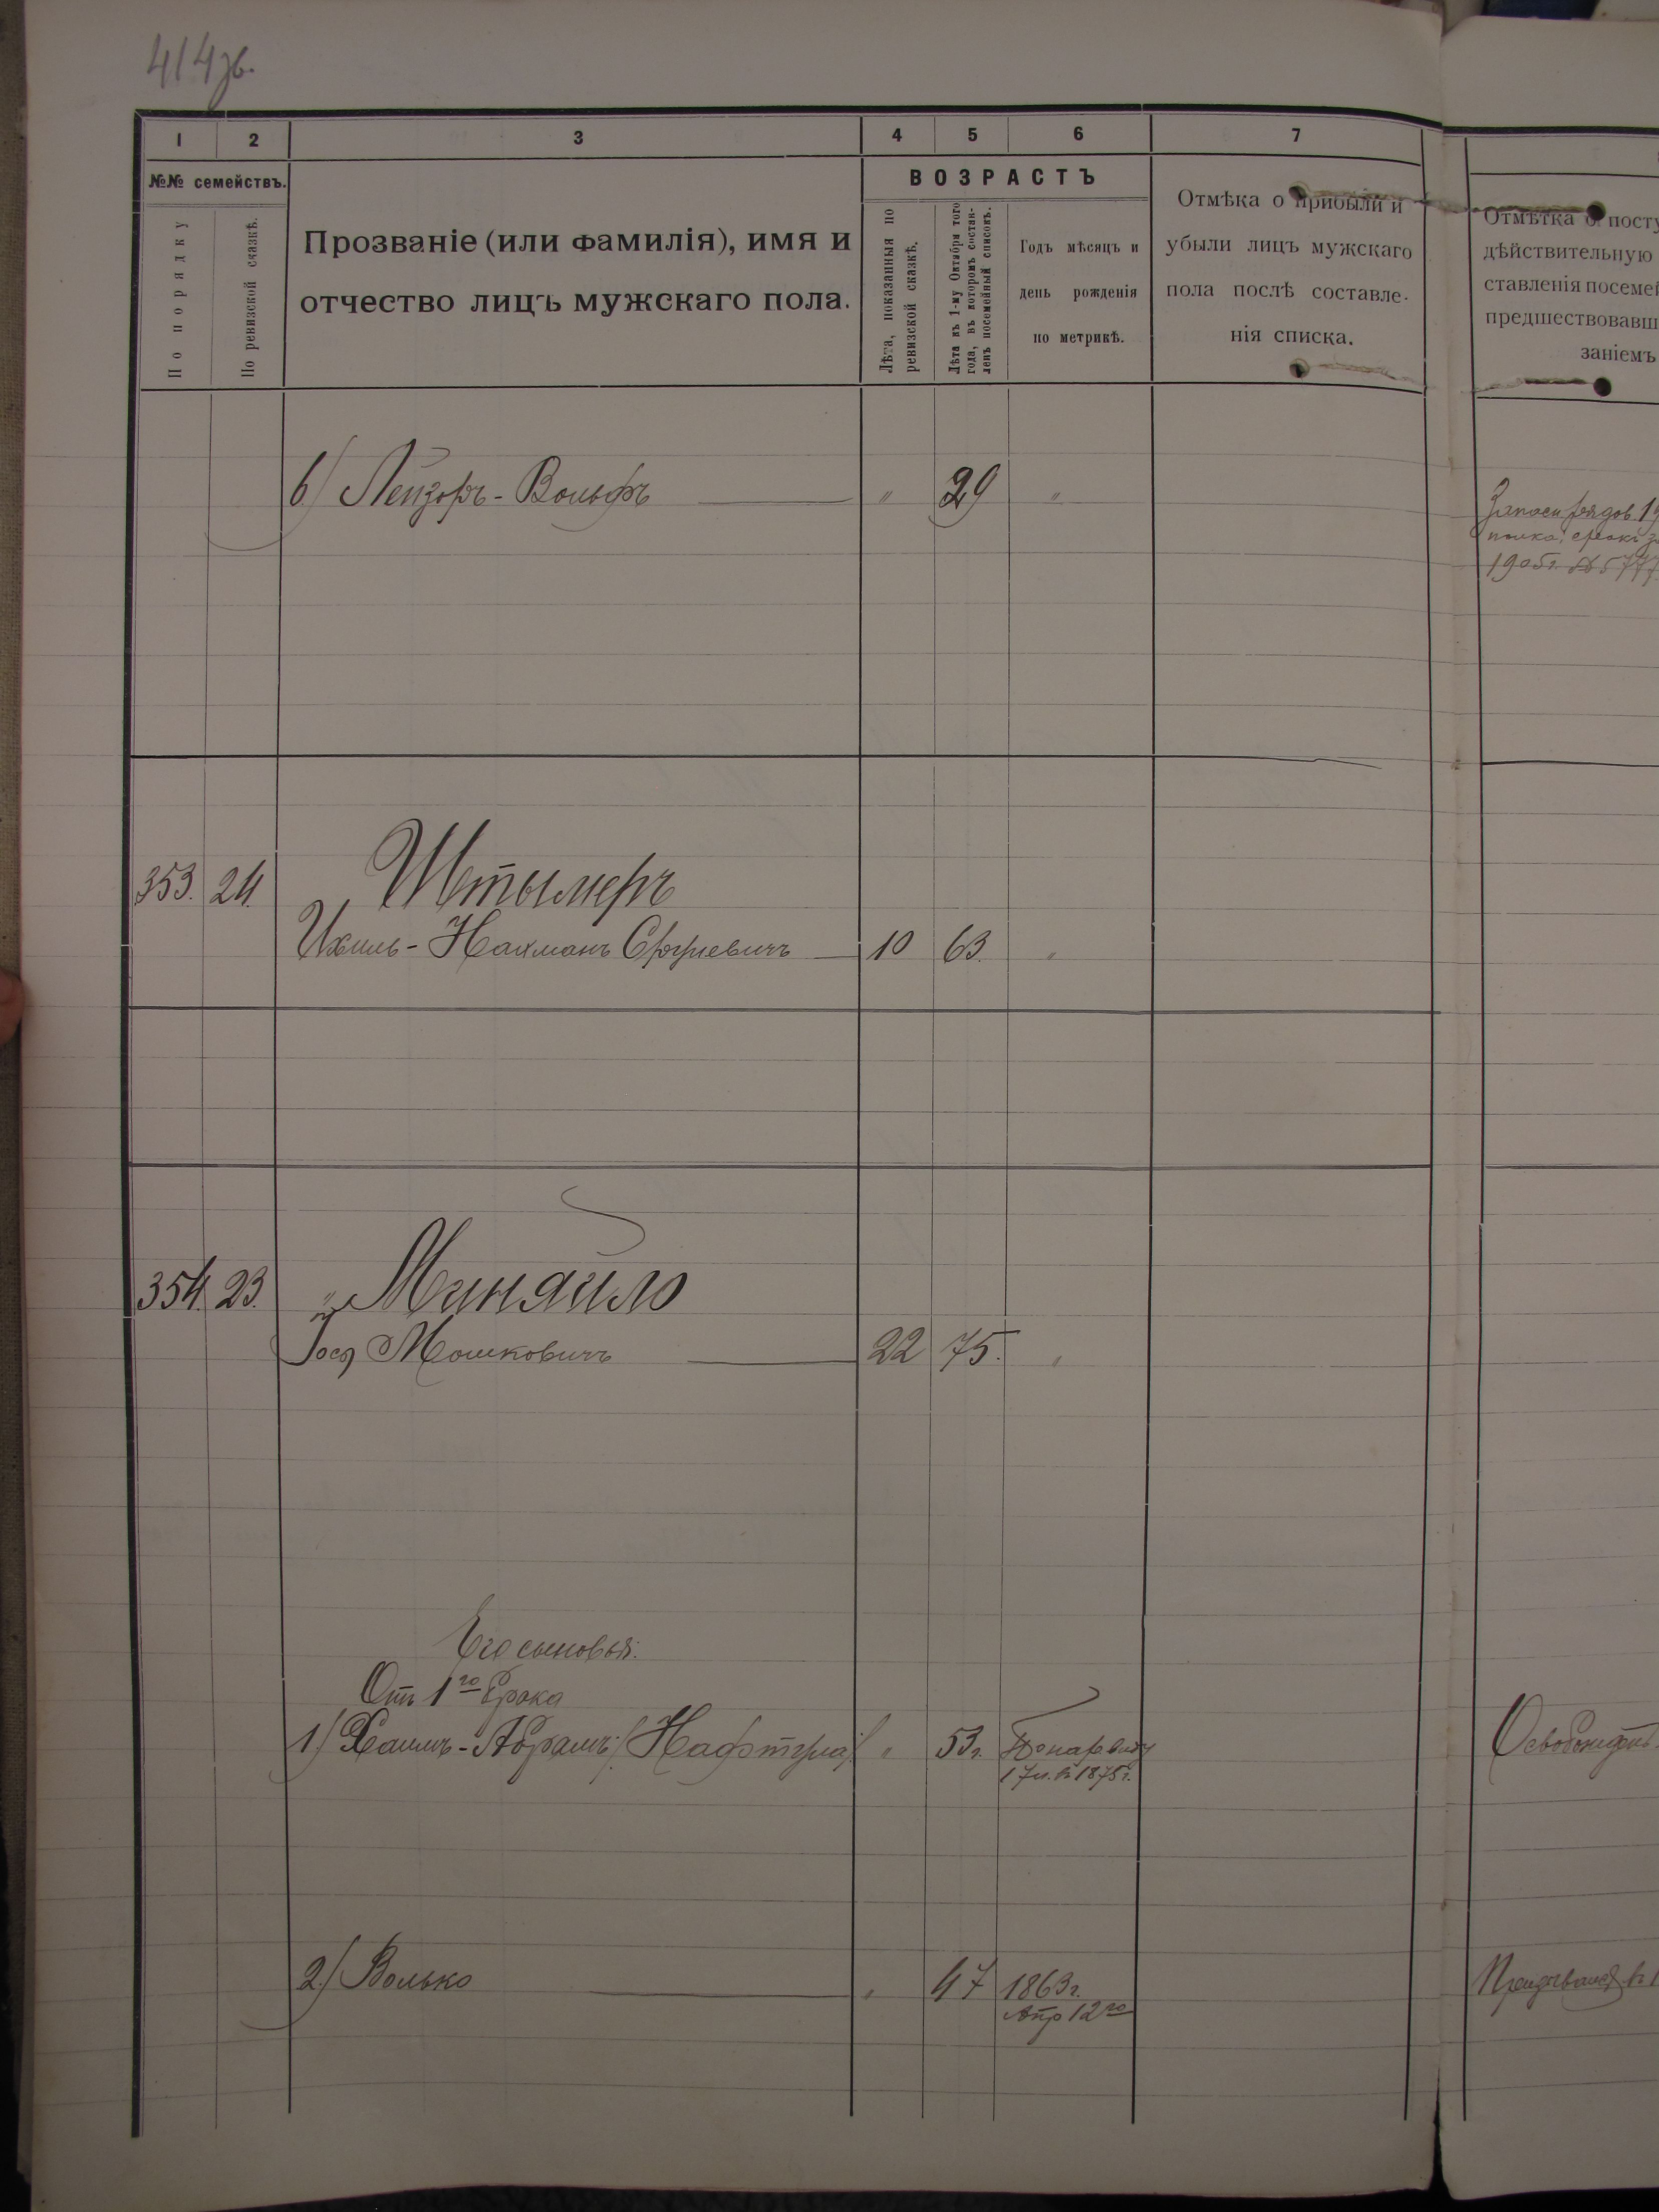 414 зв.
1 2 3 4 5 6 7
№№ семействъ.
По порядку
По ревизской сказкѣ.
Прозваніе (или фамилія), имя и
отчество лицъ мужскаго пола.
ВОЗРАСТЪ
Лѣта, показанныя по
ревизской сказкѣ.
Лѣта къ 1-му Октября того
года, въ которомъ состав-
ленъ посемейный списокъ.
Годъ мѣсяцъ и
день рожденія
по метрикѣ.
Отмѣка о прибыли и
убыли лицъ мужскаго
пола послѣ составле-
нія списка.
Отмѣтка о посту
дѣйствительную
ставленія посемей
предшествовавш
заніемъ
6) Лейзоръ-Вольфъ " 29 "
Запасн рядов. 19
полка, срокъ
1905г. № 577
353. 24. Штымеръ
Ихиль-Нахманъ Сруліевичъ 10 63. "
354. 23. Миняйло
Іося Мошковичъ 22 75. "
Его сыновья:
Отъ 1го брака
1) Хаимъ-Абрамъ (Нафтула) " 53г.
17 л. въ 1875г.
2) Волько " 47 1863г.
Апр 12го